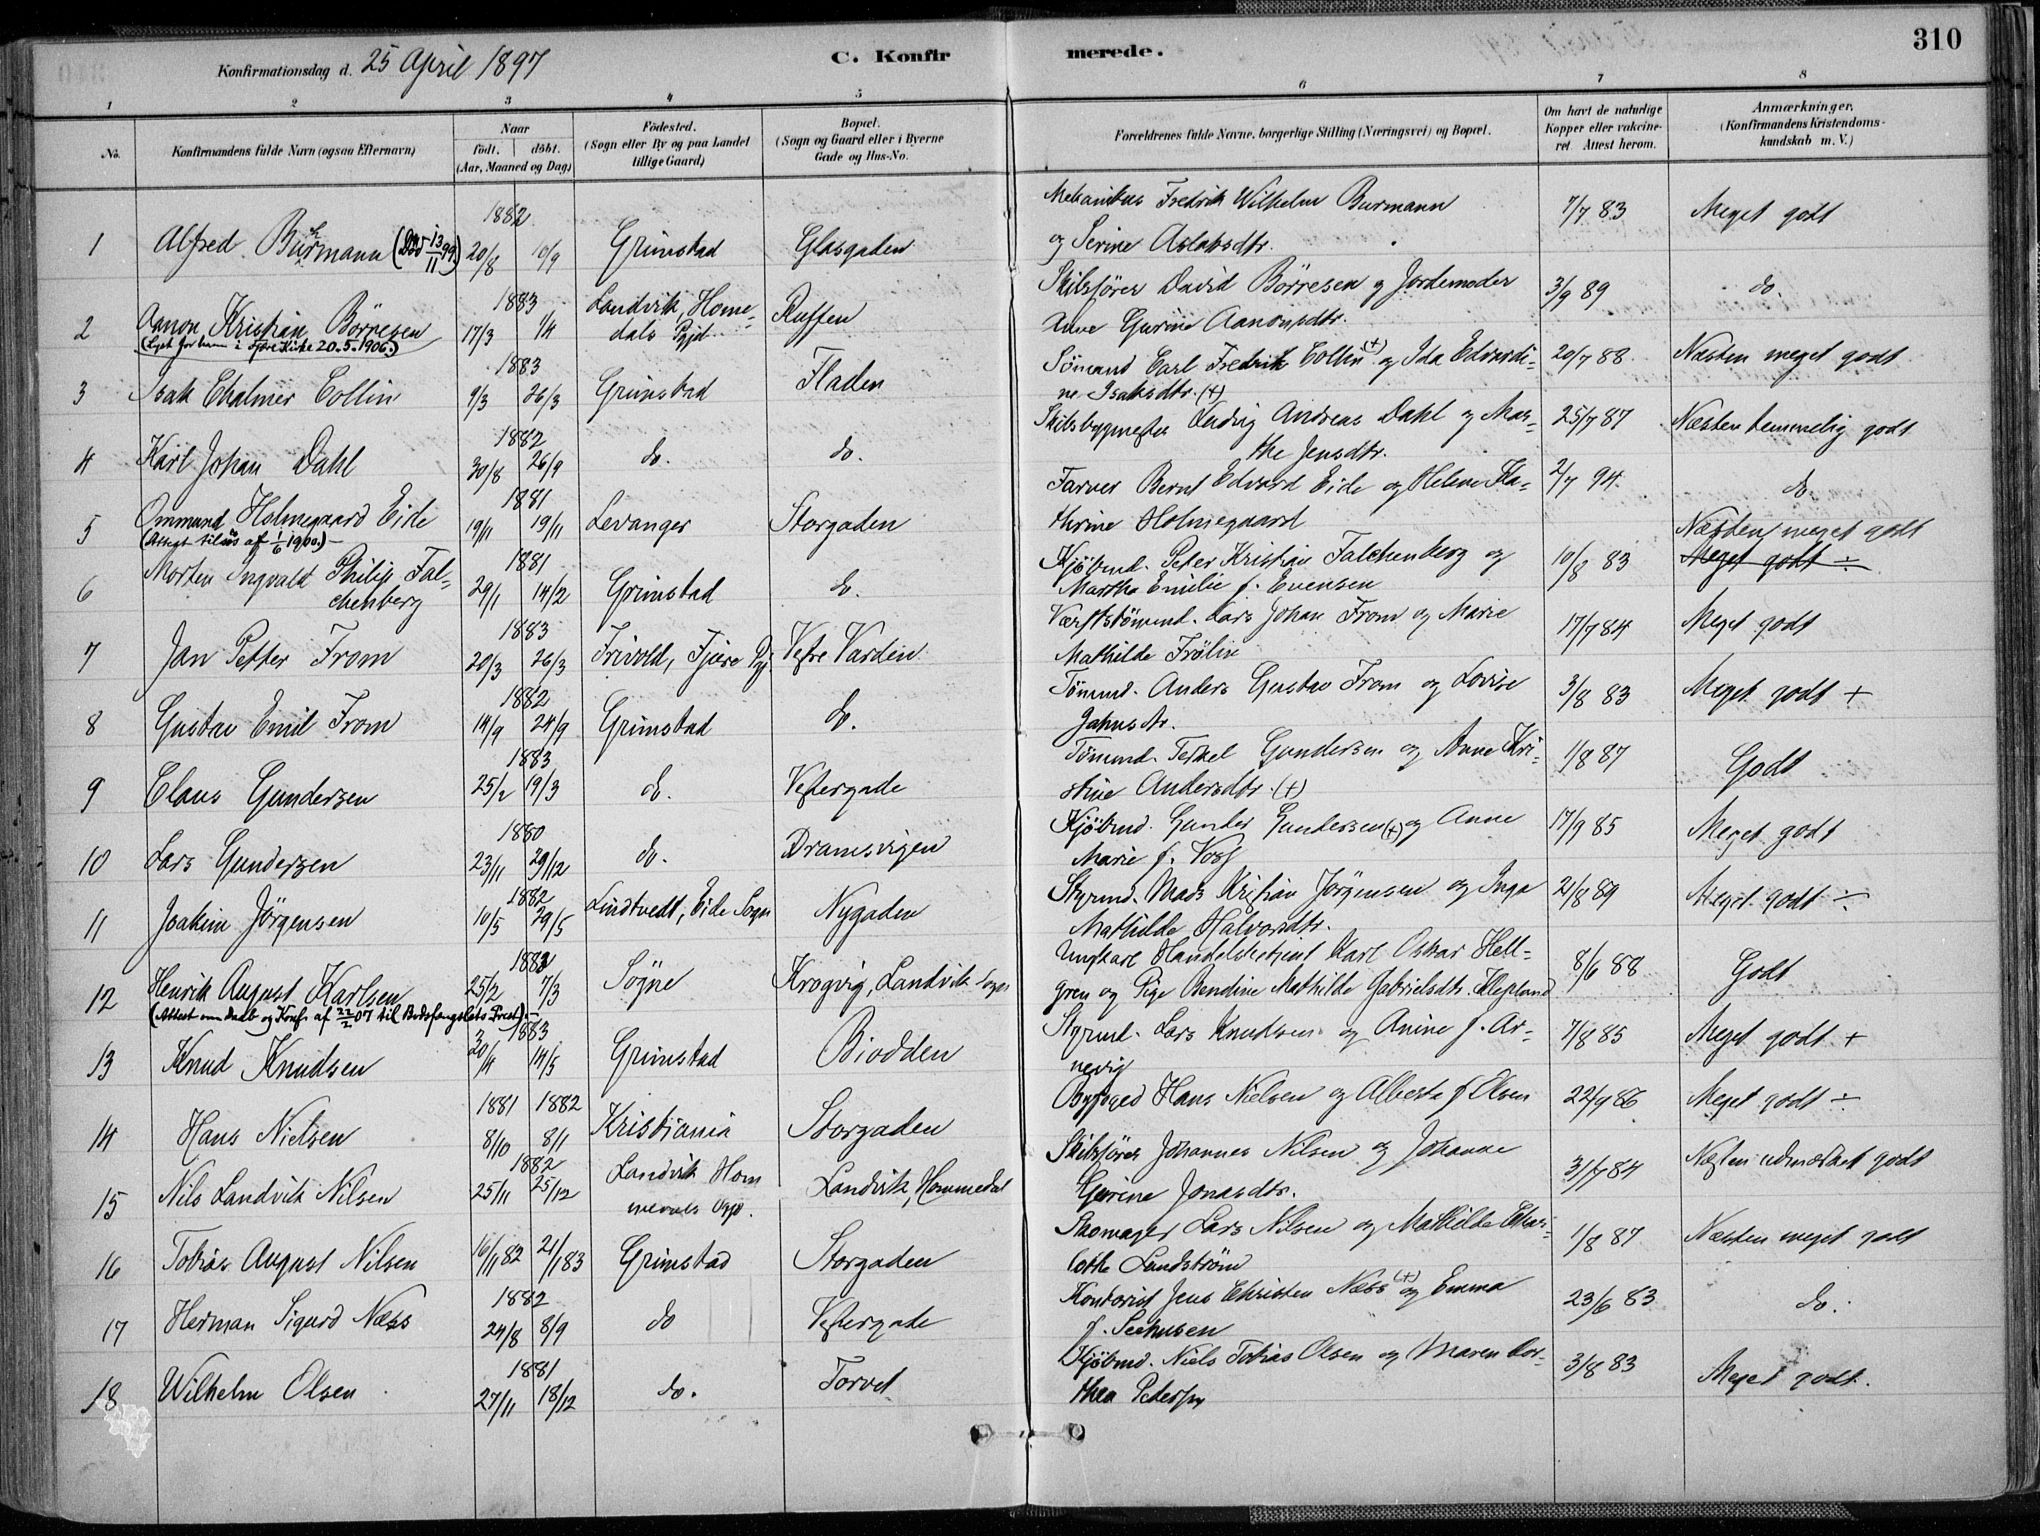 310
Konfirmationsdag d. 25 April 1897
C. Konfirmerede.
1 2 3 4 5 6 7 8
No. Konfirmandens fulde Navn (ogsaa Efternavn) Naar født. døbt. (Aar, Maaned og Dag) Fødested. (Sogn eller By og paa Landet tillige Gaard) Bopæl. (Sogn og Gaard eller i Byerne Gade og Hus-No. Forældrenes fulde Navne, borgerlige Stilling (Næringsvei) og Bopæl. Om havt de naturlige Kopper eller vakcineret. Attest herom. Anmærkninger. (Konfirmandens Kristendomskundskab m. V.)
1 Alfred Burmann (Død 13/11 99) 1882 20/8 10/9 Grimstad Glasgaden Mekanikus Fredrik Wilhelm Burmann og Serine Aslaksdtr. 7/7 83 Meget godt
2 Aanon Kristian Børresen 1883 17/3 1/4 Landvik, Homedals Pgjd. Ruffen Skibsfører David Børresen og Jordemoder Anne Gurine Aanonsdtr. 3/9 89 do.
(Lyst for ham i Fjære Kirke 20.5.1906.)
3 Isak Chalmer Collin 1883 9/3 26/3 Grimstad Fladen Sømand Carl Fredrik Collin (+) og Ida Edvardine Isaksdtr. (+) 20/7 88 Næsten meget godt
4 Karl Johan Dahl 1882 30/8 26/9 do. do. Skibsbygmester Ludvig Andreas Dahl og Marthe Jensdtr. 25/7 87 Næsten temmelig godt
5 Ommund Holmegaard Eide 1881 19/11 Levanger Storgaden Farver Bernt Edvard Eide og Helene Kathrine Holmegaard 2/7 94 do
(Attest tils af 1/6 1900.)
6 Morten Ingvald Philip Falchenberg 1881 29/1 14/2 Grimstad do. Kjøbmd. Peter Kristian Falchenberg og Martha Emilie f. Evensen 10/8 83 Næsten meget godt
Meget godt ÷
7 Jan Petter From 1883 20/3 26/3 Frivold, Fjære Pgj Vestre Varden Værftstømmd. Lars Johan From og Marie Mathilde Frølin 17/7 84 Meget godt
8 Gustav Emil From 1882 14/9 24/9 Grimstad do. Tømmd. Anders Gustav From og Lovise Jahnsdtr. 3/8 83 Meget godt +
9 Claus Gundersen 1883 25/2 19/3 do. Vestergade Tømmd. Terkel Gundersen og Anne Kristine Andersdtr. (+) 1/8 87 Godt
10 Lars Gundersen 1880 23/11 29/12 do. Dramsvigen Kjøbmd. Gunder Gundersen (+) og Anne Marie f. Voss 17/9 85 Meget godt
11 Joakim Jörgensen 1882 10/5 29/5 Lindtvedt, Eide Sogn Nygaden Styrmd. Mads Kristian Jörgensen og Inga Mathilde Halvorsdtr. 21/8 89 Meget godt ÷
12 Henrik August Karlsen 25/2 7/3 Søgne Krogvig, Landvik Sogn Ungkarl Handelsbetjent Karl Oskar Hellgren og Pige Bendine Mathilde Gabrielsdtr. Klepland 8/6 88 Godt
(Attest om Daab og Konf. af 22/2 07 til Bodsfængslets Præst)
13 Knud Knudsen 1883 14/5 Grimstad Biodden Styrmd. Lars Knudsen og Anine f. Arnevig 7/8 85 Meget godt +
14 Hans Nielsen 1881 1882 8/10 8/1 Kristiania Storgaden Byfoged Hans Nielsen og Alberta f. Olsen 22/9 86 Meget godt ÷
15 Nils Landvik Nilsen 1882 25/11 25/12 Landvik Landvik, Hommedal Skibsfører Johannes Nilsen og Johanne Gurine Jonasdtr. 31/7 84 Næsten udmærket godt
16 Tobias August Nilsen 16/11 82 21/1 83 Grimstad Storgaden Skomager Lars Nilsen og Mathilde Charlotte Lundstrøm 1/8 87 Næsten meget godt
17 Herman Sigurd Næss 1882 24/8 8/9 do Vestergade Kontorist Jens Christen Næss (+) og Emma f. Seehusen 23/6 83 do.
18 Wilhelm Olsen 1881 27/11 18/12 do. Torvet Kjøbmd. Niels Tobias Olsen og Maren Dorthea Petersen 3/8 83 Meget godt.